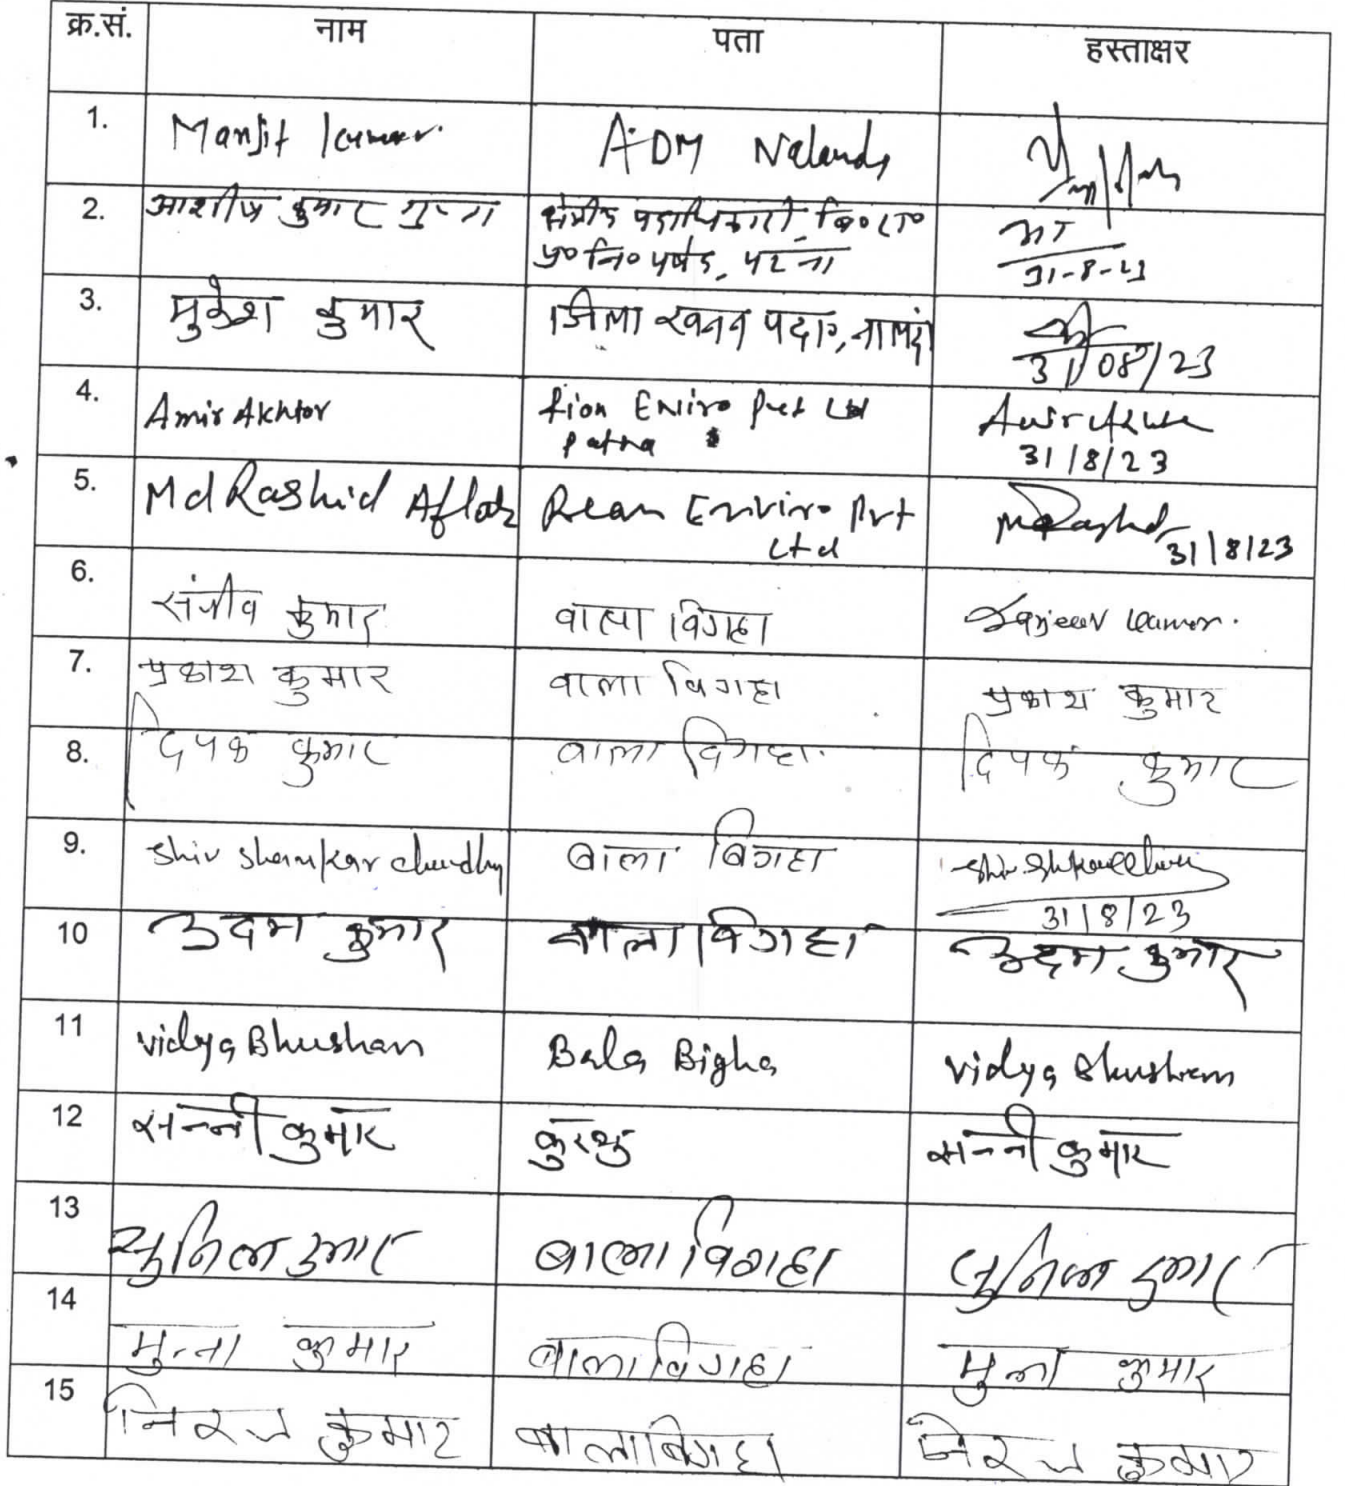 क्र.सं. नाम पता हस्ताक्षर
1. Manjit Kumar. ADM Nalanda
2. आशीष कुमार गुप्ता क्षेत्रीय पदाधिकारी, बि०रा०
प्र०नि०पर्षद, पटना
31-8-23
3. मुकेश कुमार जिला खनन पदा०, नालंदा
31/08/23
4. Amir Akhtor Enviro Pvt Ltd Amir Akhter
Patna 31/8/23
5. Md Rashid Aftab Enviro Pvt MdRashid
Ltd 31/8/23
6. संजीव कुमार वाला विगहा Sanjeev Kumar.
7. प्रकाश कुमार वाला विगहा प्रकाश कुमार
8. दिपक कुमार वाला विगहा दिपक कुमार
9. Shiv Shankar Chaudhry बाला बिगहा
31/8/23
10 उदम कुमार बाला विगहा उदम कुमार
11 Vidya Bhushan Bala Bigha Vidya Bhushan
12 सन्नी कुमार कुरथु सन्नी कुमार
13 सुनिल कुमार बाला विगहा सुनिल कुमार
14 मुन्ना कुमार बाला विगहा मुन्ना कुमार
15 निरज कुमार बाला बिगहा निरज कुमार